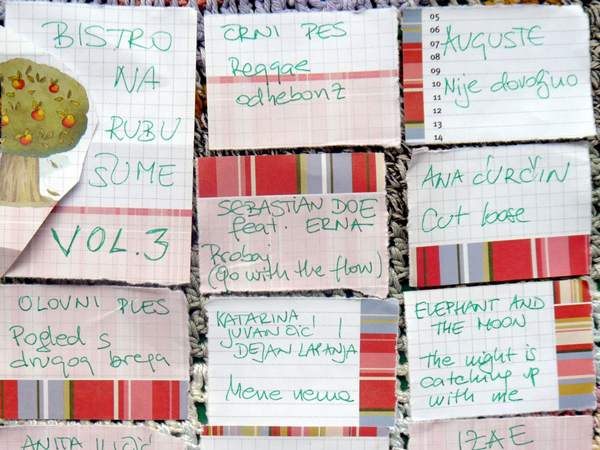 BISTRO
NA
RUBU
ŠUME
VOL.3
CRNI PES
Reggae
odhebonz
05
06
07
08
09
10
11
12
13
14
AUGUSTE
Nije dovoljno
SEBASTIAN DOE
feat. ERNA
Probaj
(go with the flow)
ANA ĆURČIN
Cut loose
OLOVNI PLES
Pogled s
drugog brega
KATARINA
JUVANČIĆ I
DEJAN LAPANJA
Mene nema
ELEPHANT AND
THE MOON
The night is
catching up
with me
ANITA
IZAE